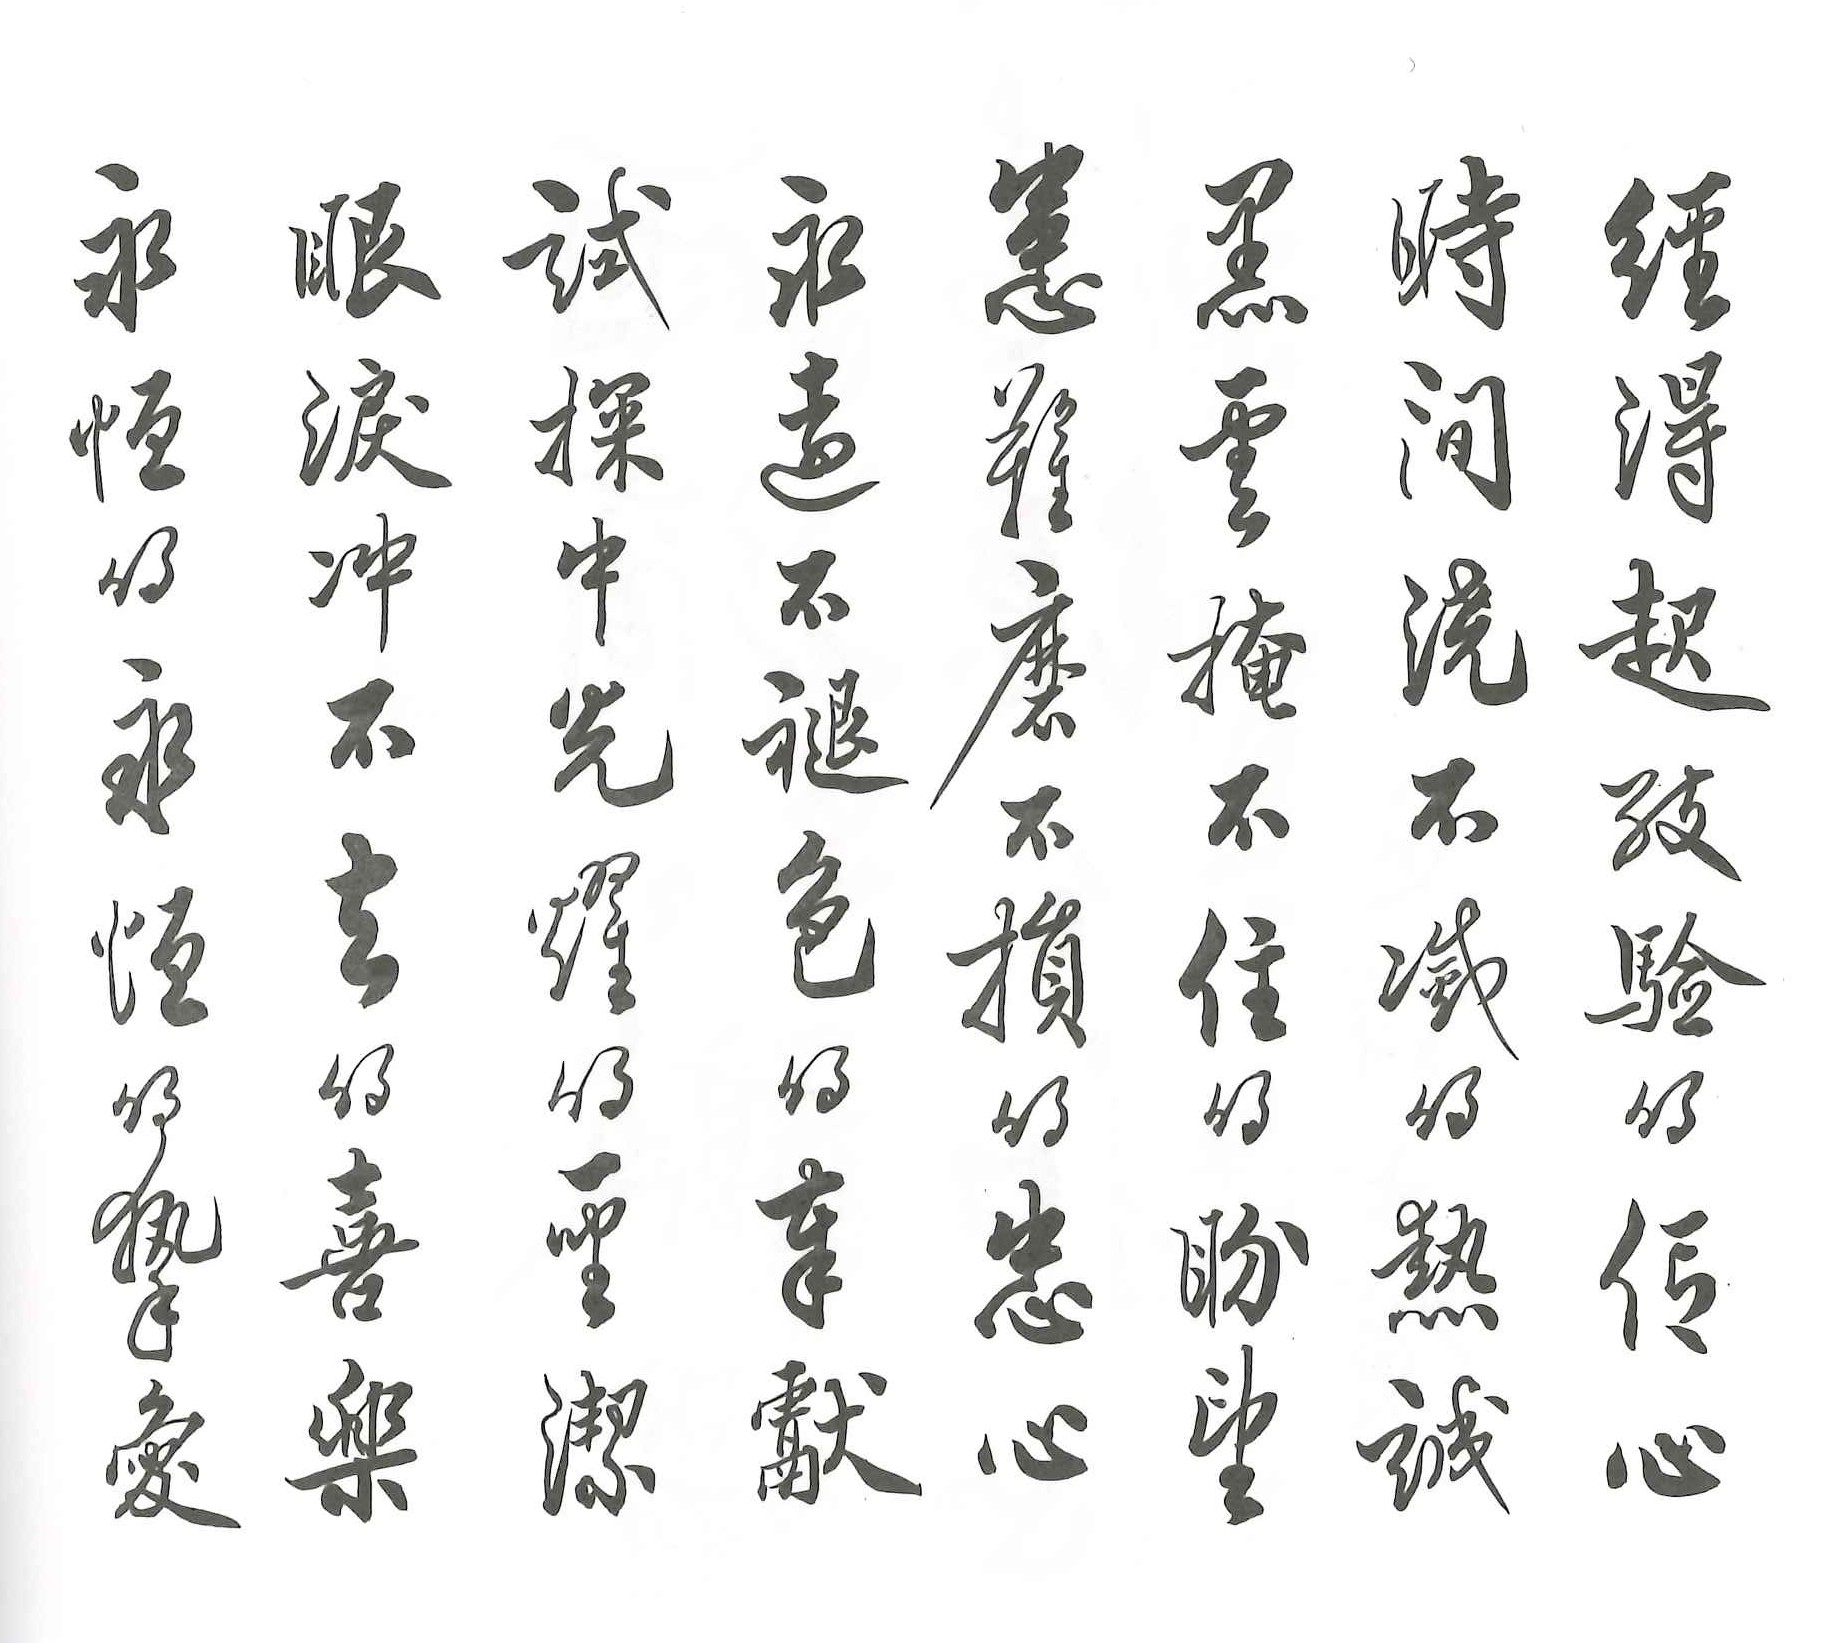 經得起考驗的信心
時间流不减的熱誠
黑雲掩不住的盼望
患難磨不損的忠心
永遠不褪色的奉獻
試探中光耀的聖潔
眼淚冲不去的喜樂
永恒的永恒的摯愛